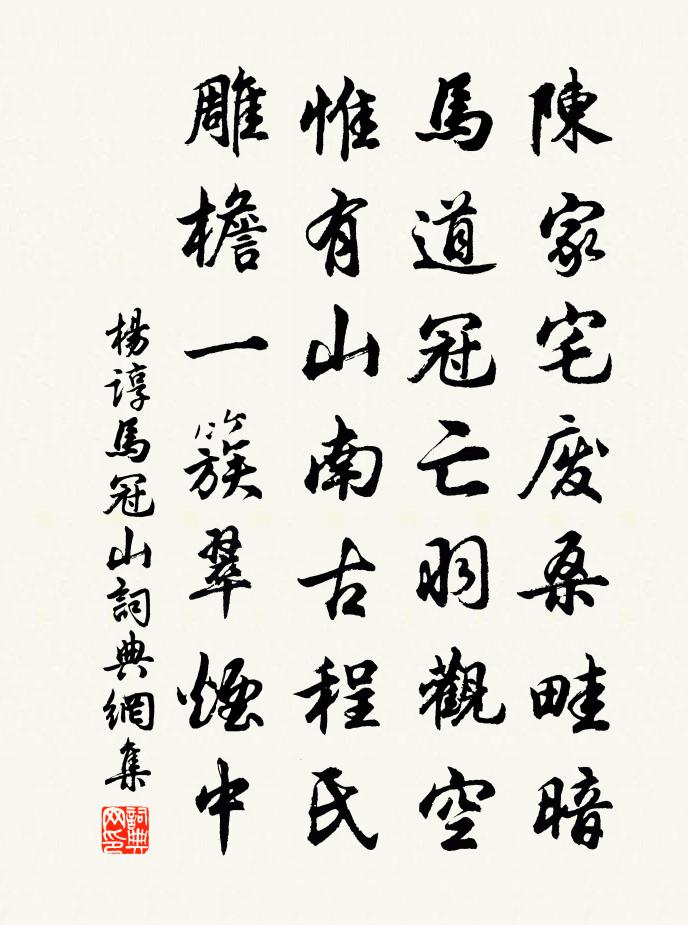 陳家宅廢桑畦暗
馬道冠亡羽觀空
惟有山南古程氏
雕檐一簇翠煙中
楊諄馬冠山詞典網集
詞典網印